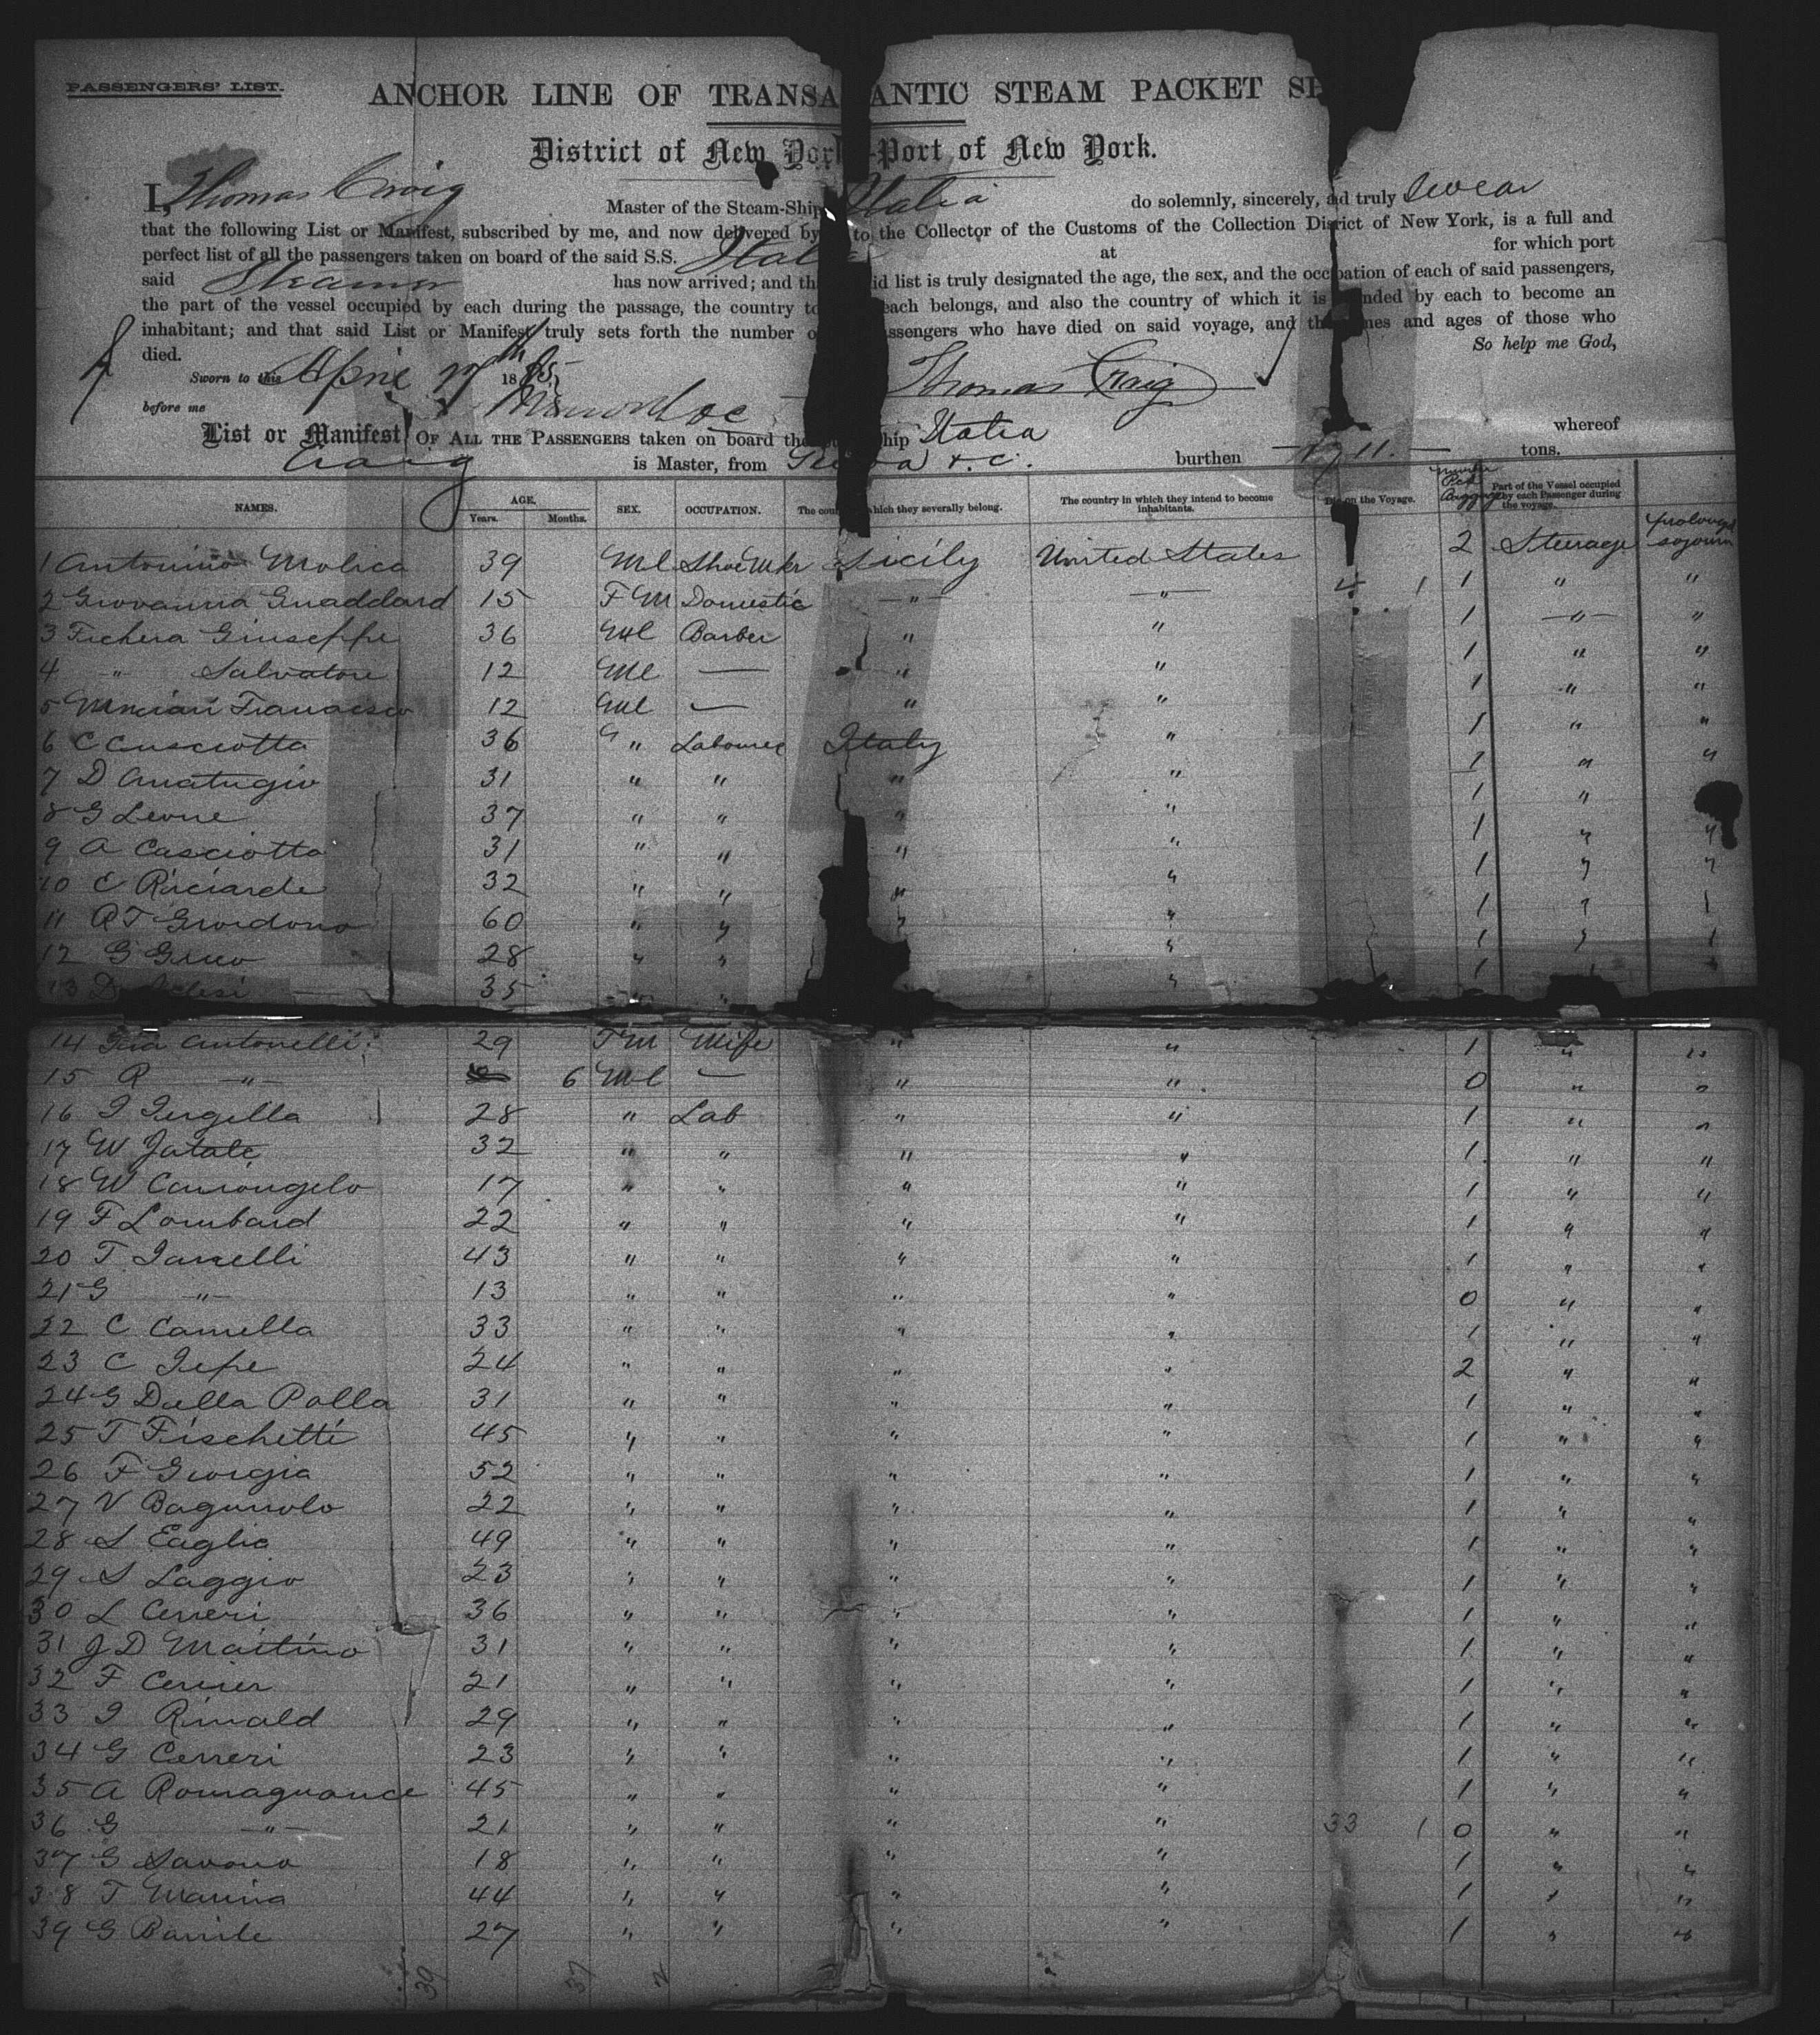 PASSENGERS' LIST.
ANCHOR LINE OF TRANSA ANTIC STEAM PACKET SH
District of New York-Port of New York.
I, Thomas Craig Master of the Steam-Ship Italia do solemnly, sincerely, ad truly swear
that the following List or Manifest, subscribed by me, and now delivered by to the Collector of the Customs of the Collection District of New York, is a full and
perfect list of all the passengers taken on board of the said S.S. Ital at for which port
said Steamer has now arrived; and th id list is truly designated the age, the sex, and the occupation of each of said passengers,
the part of the vessel occupied by each during the passage, the country to each belongs, and also the country of which it is nded by each to become an
inhabitant; and that said List or Manifest truly sets forth the number o ssengers who have died on said voyage, and th mes and ages of those who
died. So help me God,
Sworn to this April 27th 1885 Thomas Craig
before me
List or Manifest OF ALL THE PASSENGERS taken on board the ship Italia whereof
Craig is Master, from & c. burthen tons.
NAMES. AGE. Years. Months. SEX. OCCUPATION. The coun which they severally belong. The country in which they intend to become inhabitants. Die on the Voyage. Number Pcs Baggage Part of the Vessel occupied by each Passenger during the voyage.
1 Antonino Molica 39 Ml ShoeMkr Sicily United States 2 Steerage prolonged sojourn
2 Giovanna Guaddard 15 FM Domestic " " 4 1 1 " "
3 Fichera Giuseppe 36 Ml Barber " " 1 " "
4 " Salvatore 12 Ml — " " 1 " "
5 Francesco 12 Ml — " " 1 " "
6 C Cusciotta 36 " Labourer Italy " 1 " "
7 D Anatugio 31 " " " " 1 " "
8 G Leone 37 " " " " 1 " "
9 A Casciotta 31 " " " " 1 " "
10 C Riciarde 32 " " " " 1 " "
11 R T Giordono 60 " " " " 1 " "
12 G Greco 28 " " " " 1 " "
13 D 35 " " " 1 "
14 Antonelli 29 FM Wife " " 1 " "
15 R " 6 Ml — " " 0 " "
16 I Tergella 28 " Lab " " 1 " "
17 W Jatale 32 " " " " 1 " "
18 W Camongelo 17 " " " " 1 " "
19 F Lombard 22 " " " " 1 " "
20 T Ianelli 43 " " " " 1 " "
21 G " 13 " " " " 0 " "
22 C Camella 33 " " " " 1 " "
23 C Iepe 24 " " " " 2 " "
24 G Della Palla 31 " " " " 1 " "
25 T Fischetti 45 " " " " 1 " "
26 F Giorgia 52 " " " " 1 " "
27 V Bagunolo 22 " " " " 1 " "
28 S Eaglio 49 " " " " 1 " "
29 S Laggio 23 " " " " 1 " "
30 L Cerreri 36 " " " " 1 " "
31 J D Martino 31 " " " " 1 " "
32 F Cerrier 21 " " " " 1 " "
33 I Rinald 29 " " " " 1 " "
34 G Cerreri 23 " " " " 1 " "
35 A Romaguance 45 " " " " 1 " "
36 G " 21 " " " " 33 1 0 " "
37 G Savono 18 " " " " 1 " "
38 T Manna 44 " " " " 1 " "
39 G Barrile 27 " " " " 1 " "
39 37 2